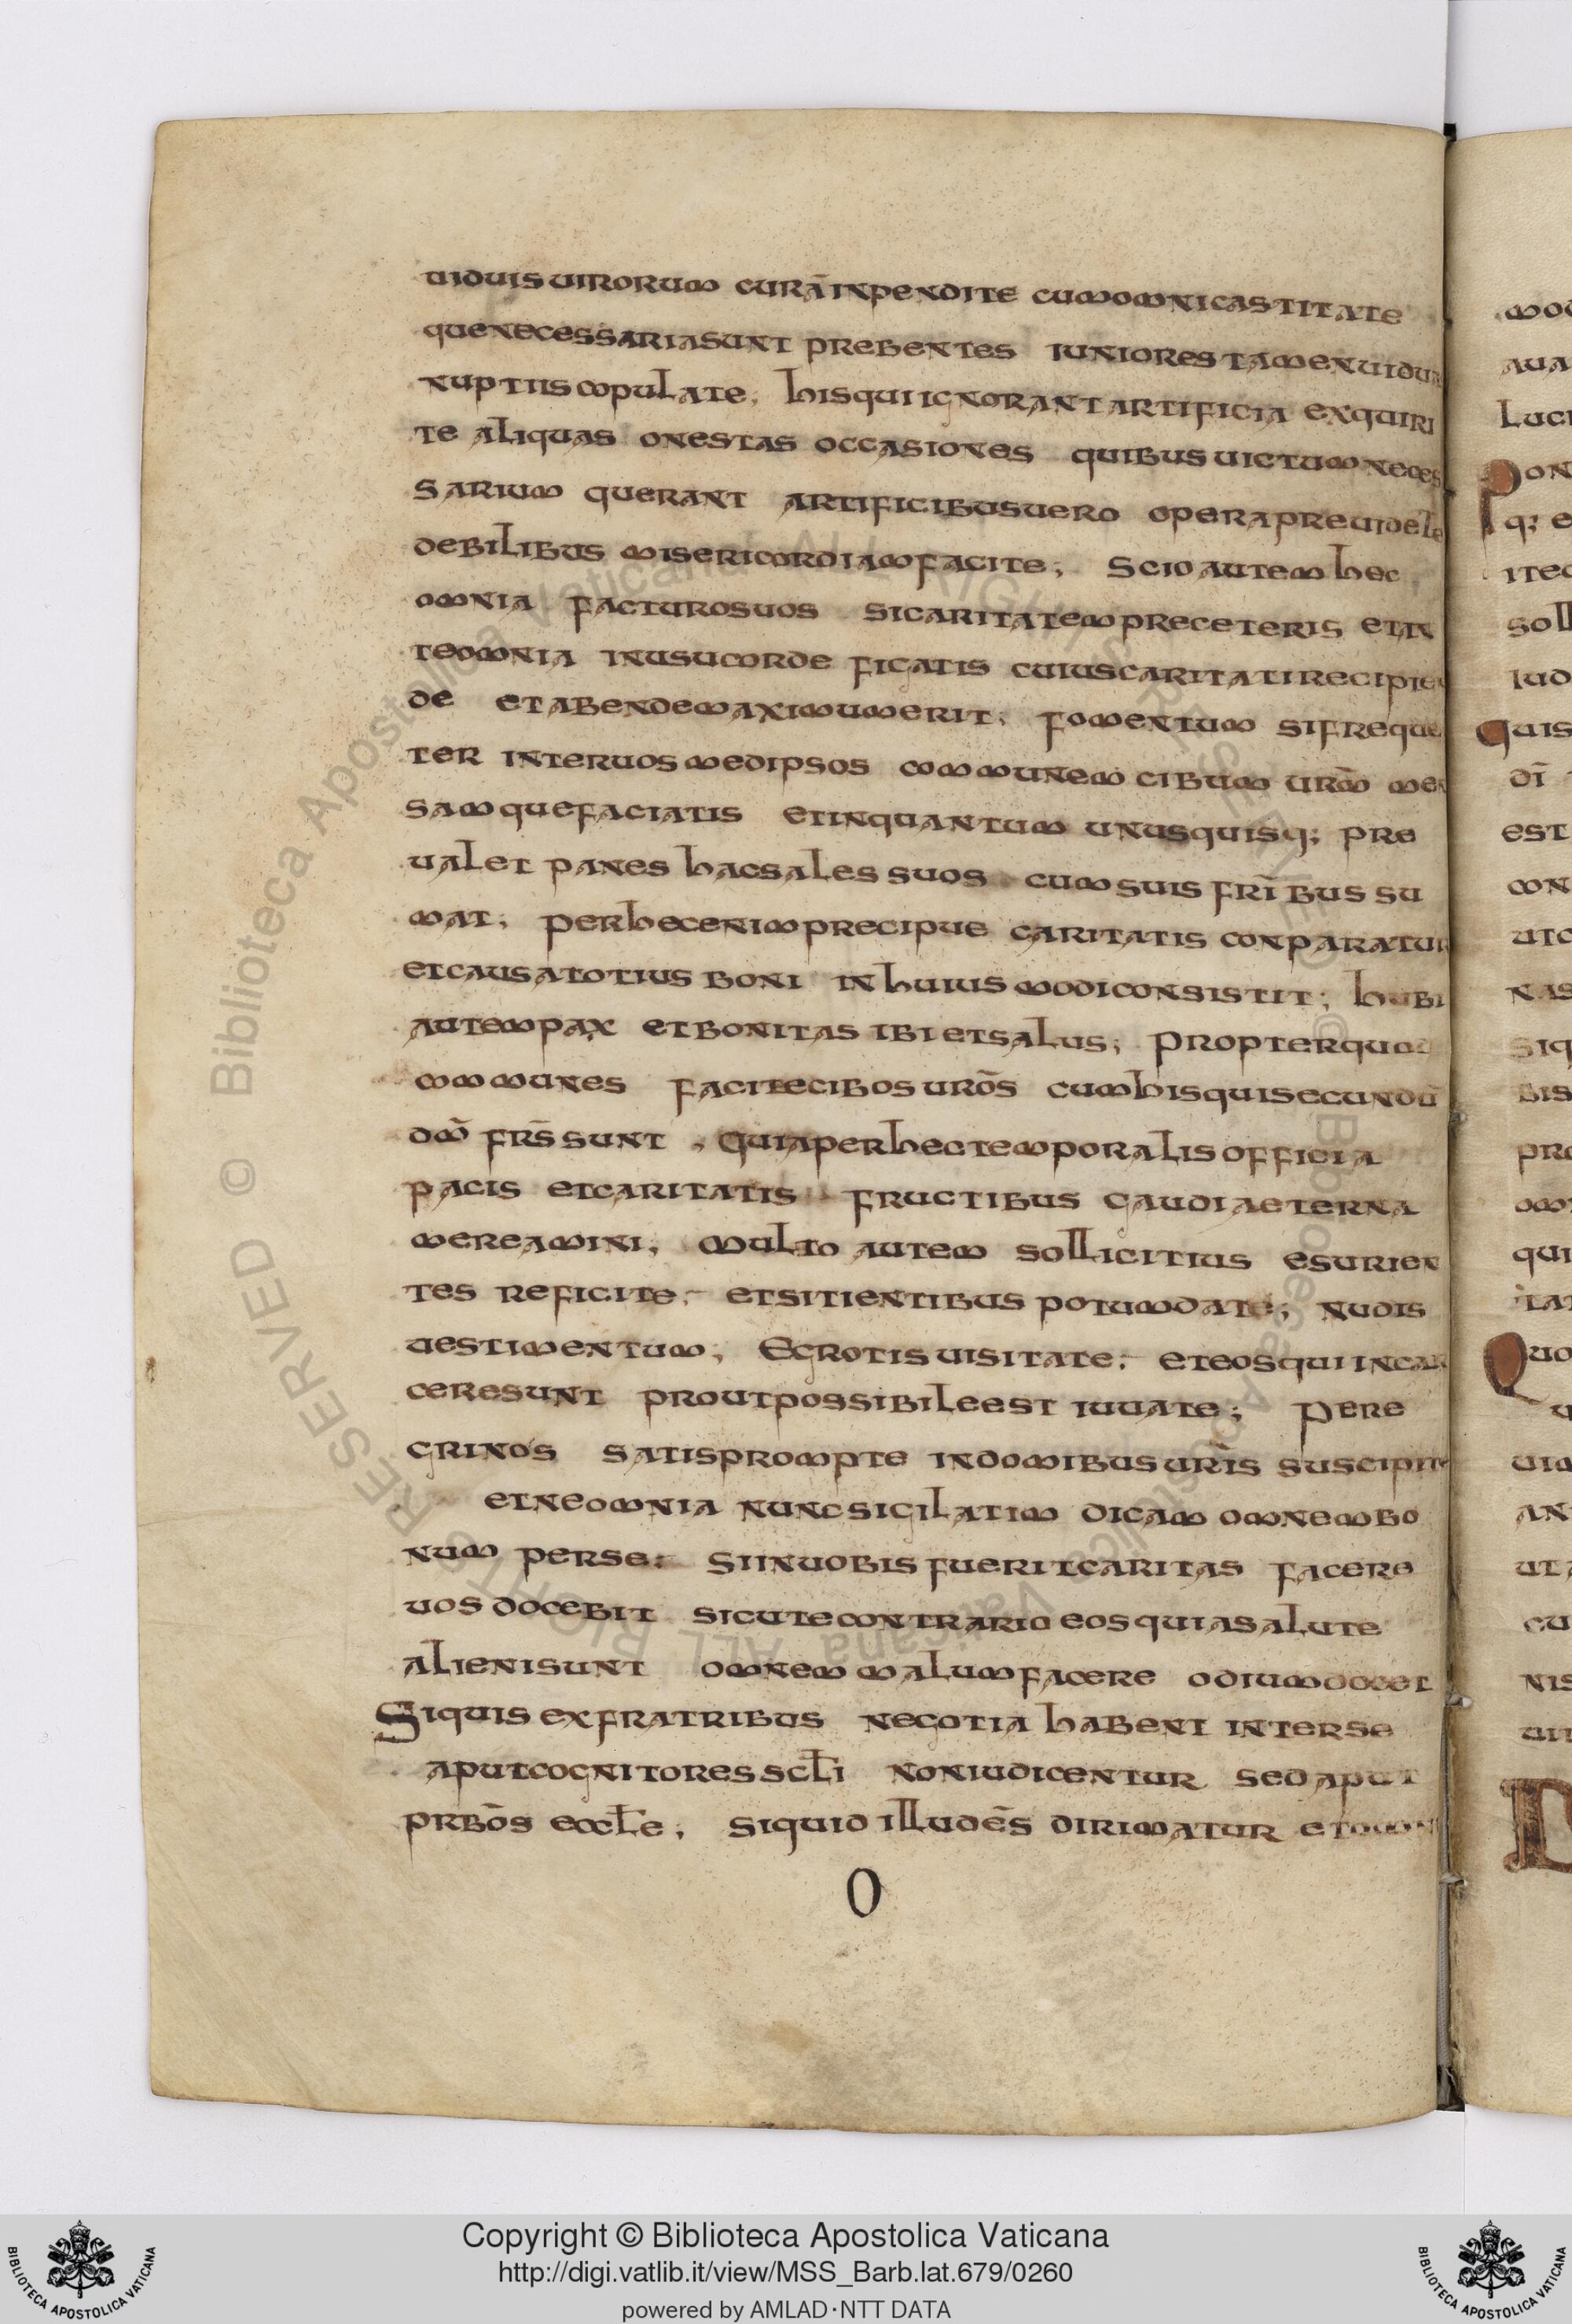 uiduis uirorum curā inpendite cum omni castitate
que necessaria sunt prebentes iuniores tamen uidua
nuptiis copulate; his qui ignorant artificia exquiri
te aliquas onestas occasiones quibus uictum neces
sarium querant artificibus uero opera preuidete
debilibus misericordiam facite; Scio autem hec
omnia facturos uos si caritatem pre ceteris et in
te omnia in usu corde figatis cuius caritati recipien
de et abende maximum erit; fomentum si freque
ter inter uos med ipsos communem cibum urm̄ men
samque faciatis et in quantum unusquisq; pre
ualet panes hac sales suos cum suis frībus su
mat; per hec enim precipue caritatis conparatur
et causa totius boni in huiusmodi consistit; hubi
autem pax et bonitas ibi et salus; propter quod
communes facite cibos urōs cum his qui secundū
dm̄ frs̄ sunt, quia per hec temporalis officia
pacis et caritatis fructibus gaudia eterna
mereamini; Multo autem sollicitius esurien
tes reficite; et sitientibus potum date; nudis
uestimentum; Egrotis uisitate; et eos qui in car
cere sunt prout possibile est iuuate; Pere
grinos satis prompte in domibus urīs suscipite
et ne omnia nunc sigilatim dicam omnem bo
num per se; Si in uobis fuerit caritas facere
uos docebit sicut e contrario eos qui a salute
alieni sunt omnem malum facere odium docet
Siquis ex fratribus negotia habent inter se
aput cognitores scłi non iudicentur sed aput
prbōs eccłe; siquid illud ēs dirimatur et omni
O
Copyright © Biblioteca Apostolica Vaticana
http://digi.vatlib.it/view/MSS_Barb.lat.679/0260
powered by AMLAD·NTT DATA